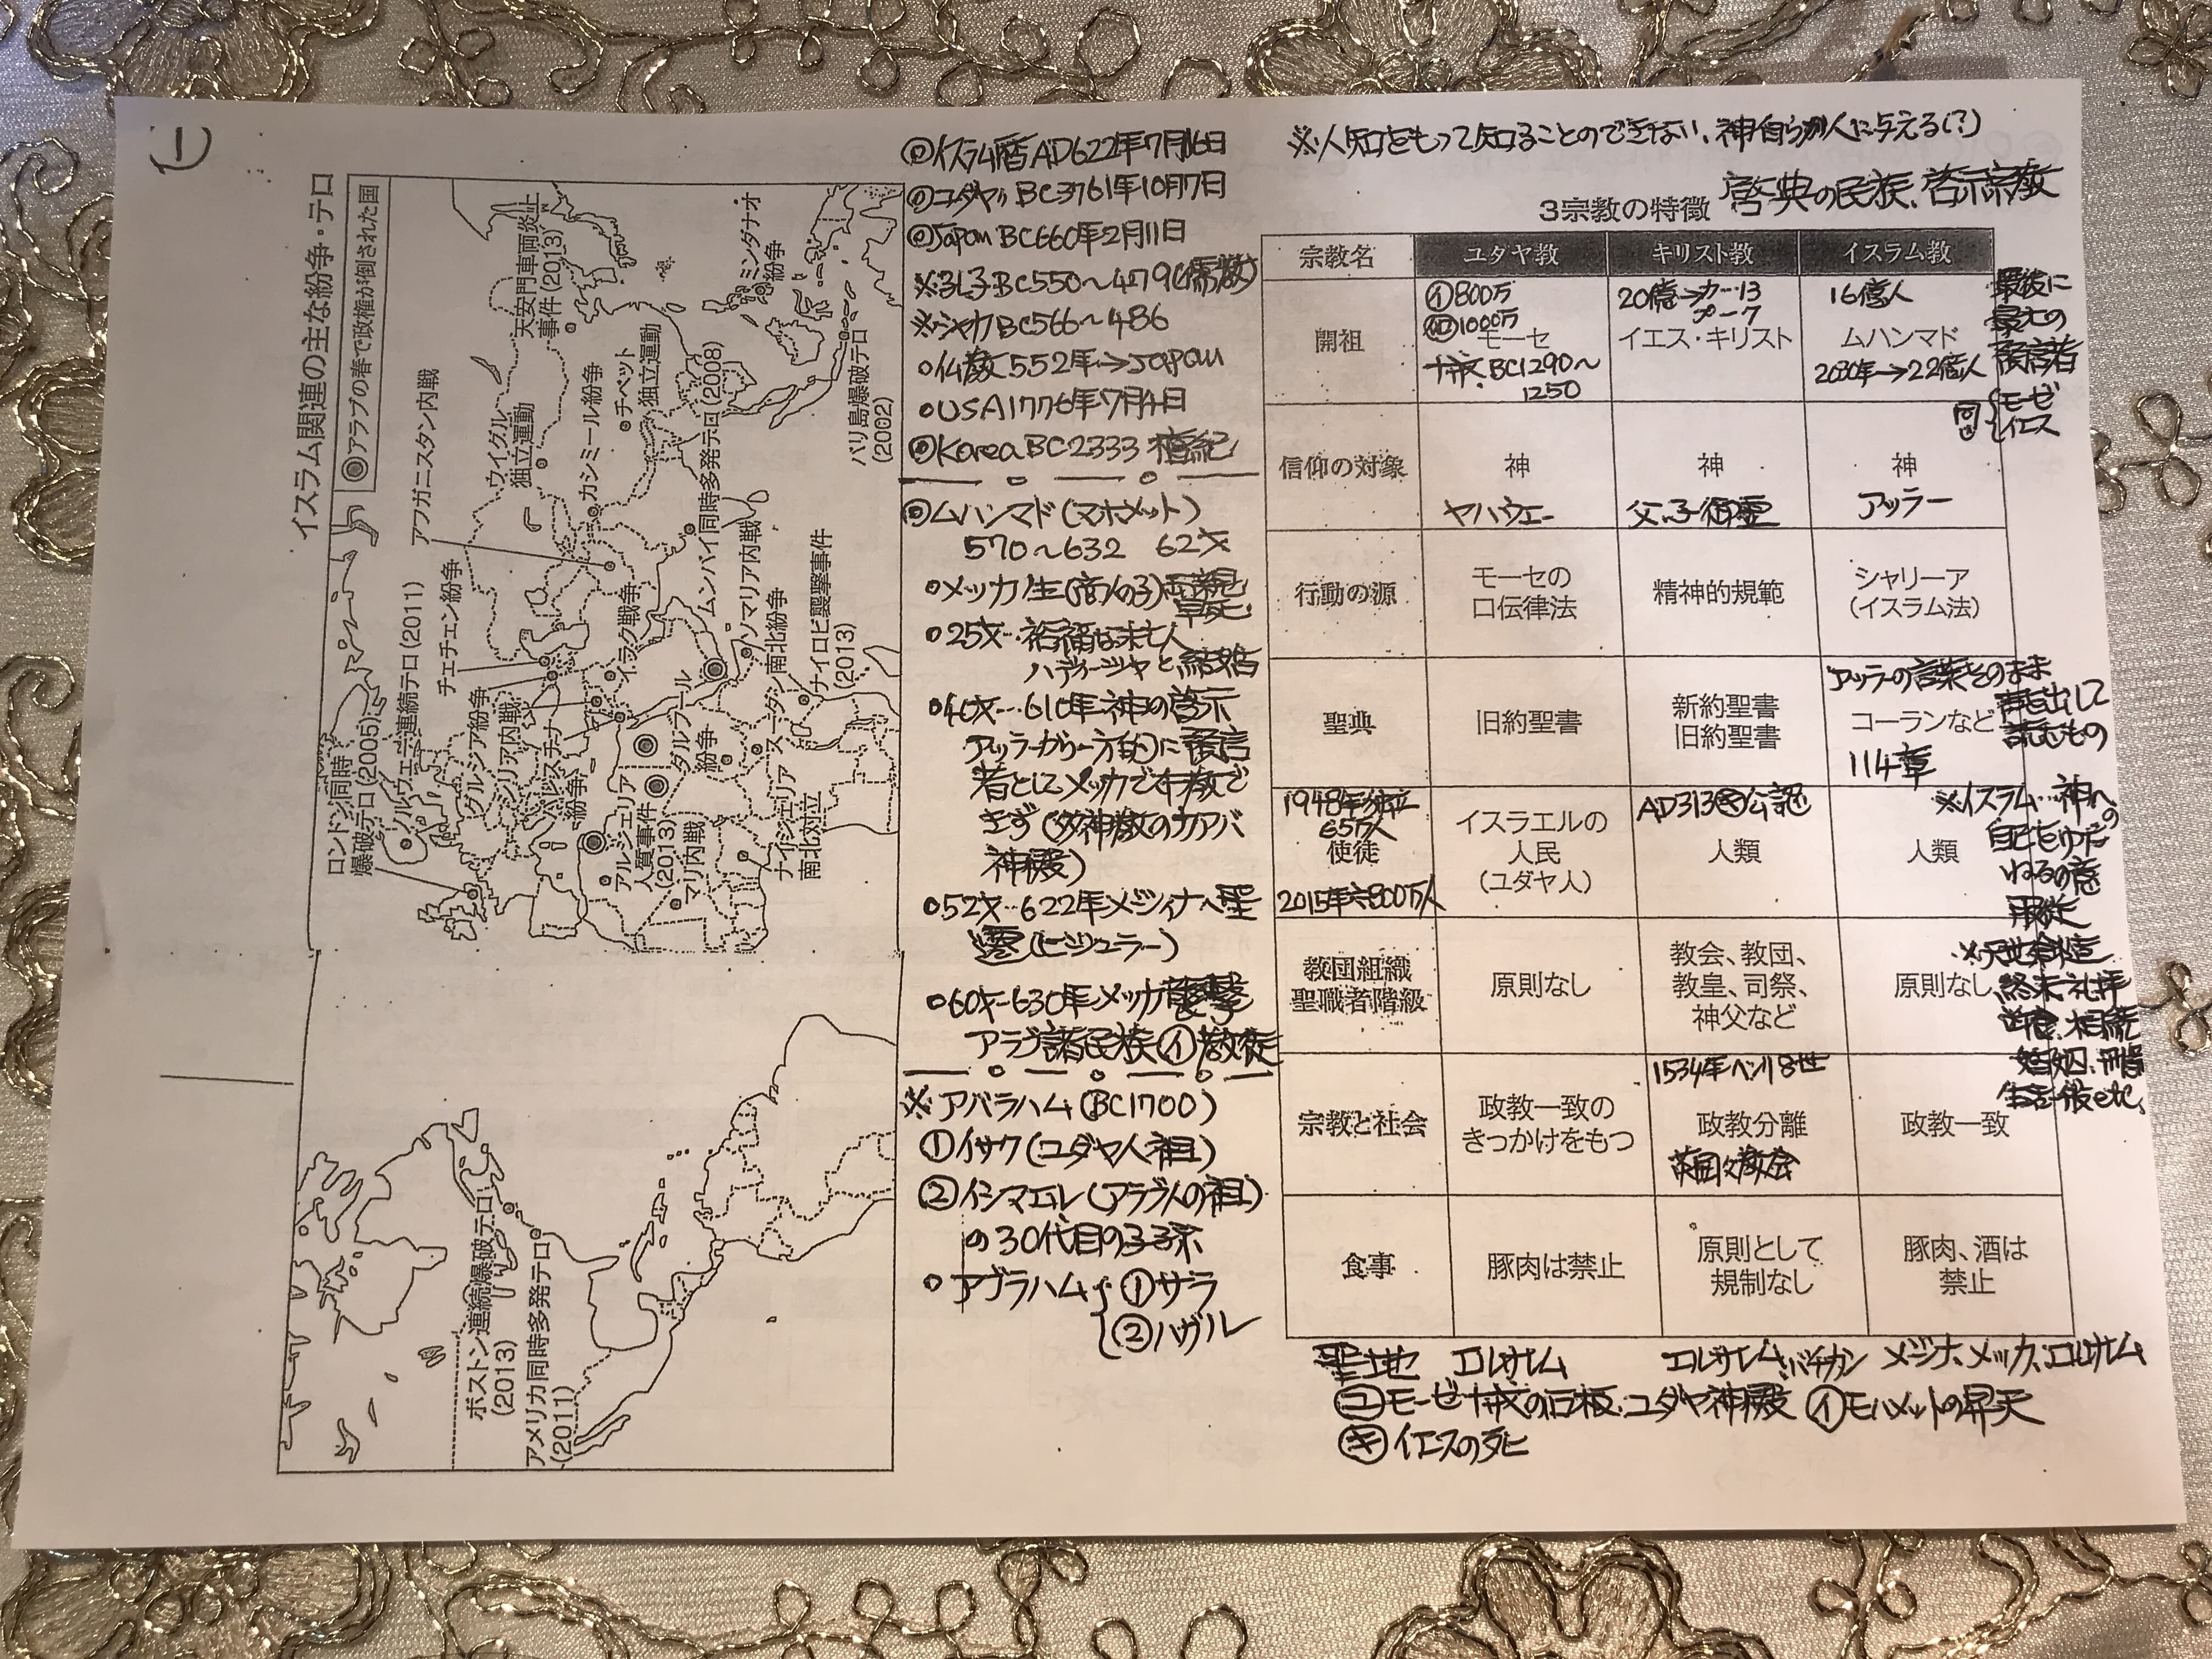 (一)
イスラム関連の主な紛争・テロ
◎アラブの春で政権が倒された国
ロンドン同時
爆破テロ(2005)
ノルウェー連続テロ(2011)
チェチェン紛争
アフガニスタン内戦
グルジア紛争
シリア内戦
パレスチナ
紛争
イラク戦争
ウイグル
独立運動
天安門車両炎上
事件(2013)
カシミール紛争
チベット
独立運動
ムンバイ同時多発テロ(2008)
ミンダナオ
紛争
バリ島爆破テロ
(2002)
アルジェリア
人質事件
(2013)
マリ内戦
ダルフール
紛争
ナイジェリア
南北対立
スーダン南北紛争
ソマリア内戦
ナイロビ襲撃事件
(2013)
ボストン連続爆破テロ
(2013)
アメリカ同時多発テロ
(2011)
◎イスラム暦AD622年7月16日
◎ユダヤ〃BC3761年10月7日
◎Japan BC660年2月11日
※孔子BC550〜479(儒教)
※シャカBC566〜486
○仏教552年→Japan
○USA1776年7月4日
◎Korea BC2333 檀紀
◎ムハンマド(マホメット)
570〜632 62才
○メッカ生(商人の子)両親
早死
○25才…裕福な未亡人
ハディージャと結婚
○40才…610年神の啓示
アッラーから一方的に預言
者としてメッカで布教で
きず(多神教のカアバ
神殿)
○52才…622年メジィナへ聖
遷(ヒジュラー)
○60才―630年メッカ襲撃
アラブ諸民族㋑教徒
※アバラハム(BC1700)
①イサク(ユダヤ人祖)
②イシマエル(アラブ人の祖)
の30代目の子孫
○アブラハム{①サラ
②ハガル
※人知をもって知ることのできない、神自らが人に与える(?)
3宗教の特徴 啓典の民族、啓示宗教
宗教名 ユダヤ教 キリスト教 イスラム教
㋑800万 20億→カ…13 16億人
1000万 プー7
開祖 モーセ イエス・キリスト ムハンマド
十戒BC1290〜 2030年→22億人
1250
最後に
最大の
預言者
モーゼ
イエス
信仰の対象 神 神 神
ヤハウェー 父、子御霊 アッラー
行動の源 モーセの 精神的規範 シャリーア
口伝律法 (イスラム法)
アッラーの言葉をそのまま
聖典 旧約聖書 新約聖書 コーランなど 声を出して
旧約聖書 読むもの
114章
1948年独立 AD313㋖公認
65万人
使徒 イスラエルの 人類 人類
人民
(ユダヤ人)
2015年 800万人
※イスラム…神への
自己をゆだ
ねるの意
服従
教団組織 原則なし 教会、教団、 原則なし
聖職者階級 教皇、司祭、
神父など
※天地創造
終末、礼拝
断食、相続
婚姻、刑罰
生活般etc、
1534年ヘンリ8世
宗教と社会 政教一致の 政教分離 政教一致
きっかけをもつ
英国々教会
食事 豚肉は禁止 原則として 豚肉、酒は
規制なし 禁止
聖地 エルサレム エルサレム、バチカン メジナ、メッカ、エルサレム
㋴モーゼ十戒の石板、ユダヤ神殿 ㋑モハメットの昇天
㋖イエスの死